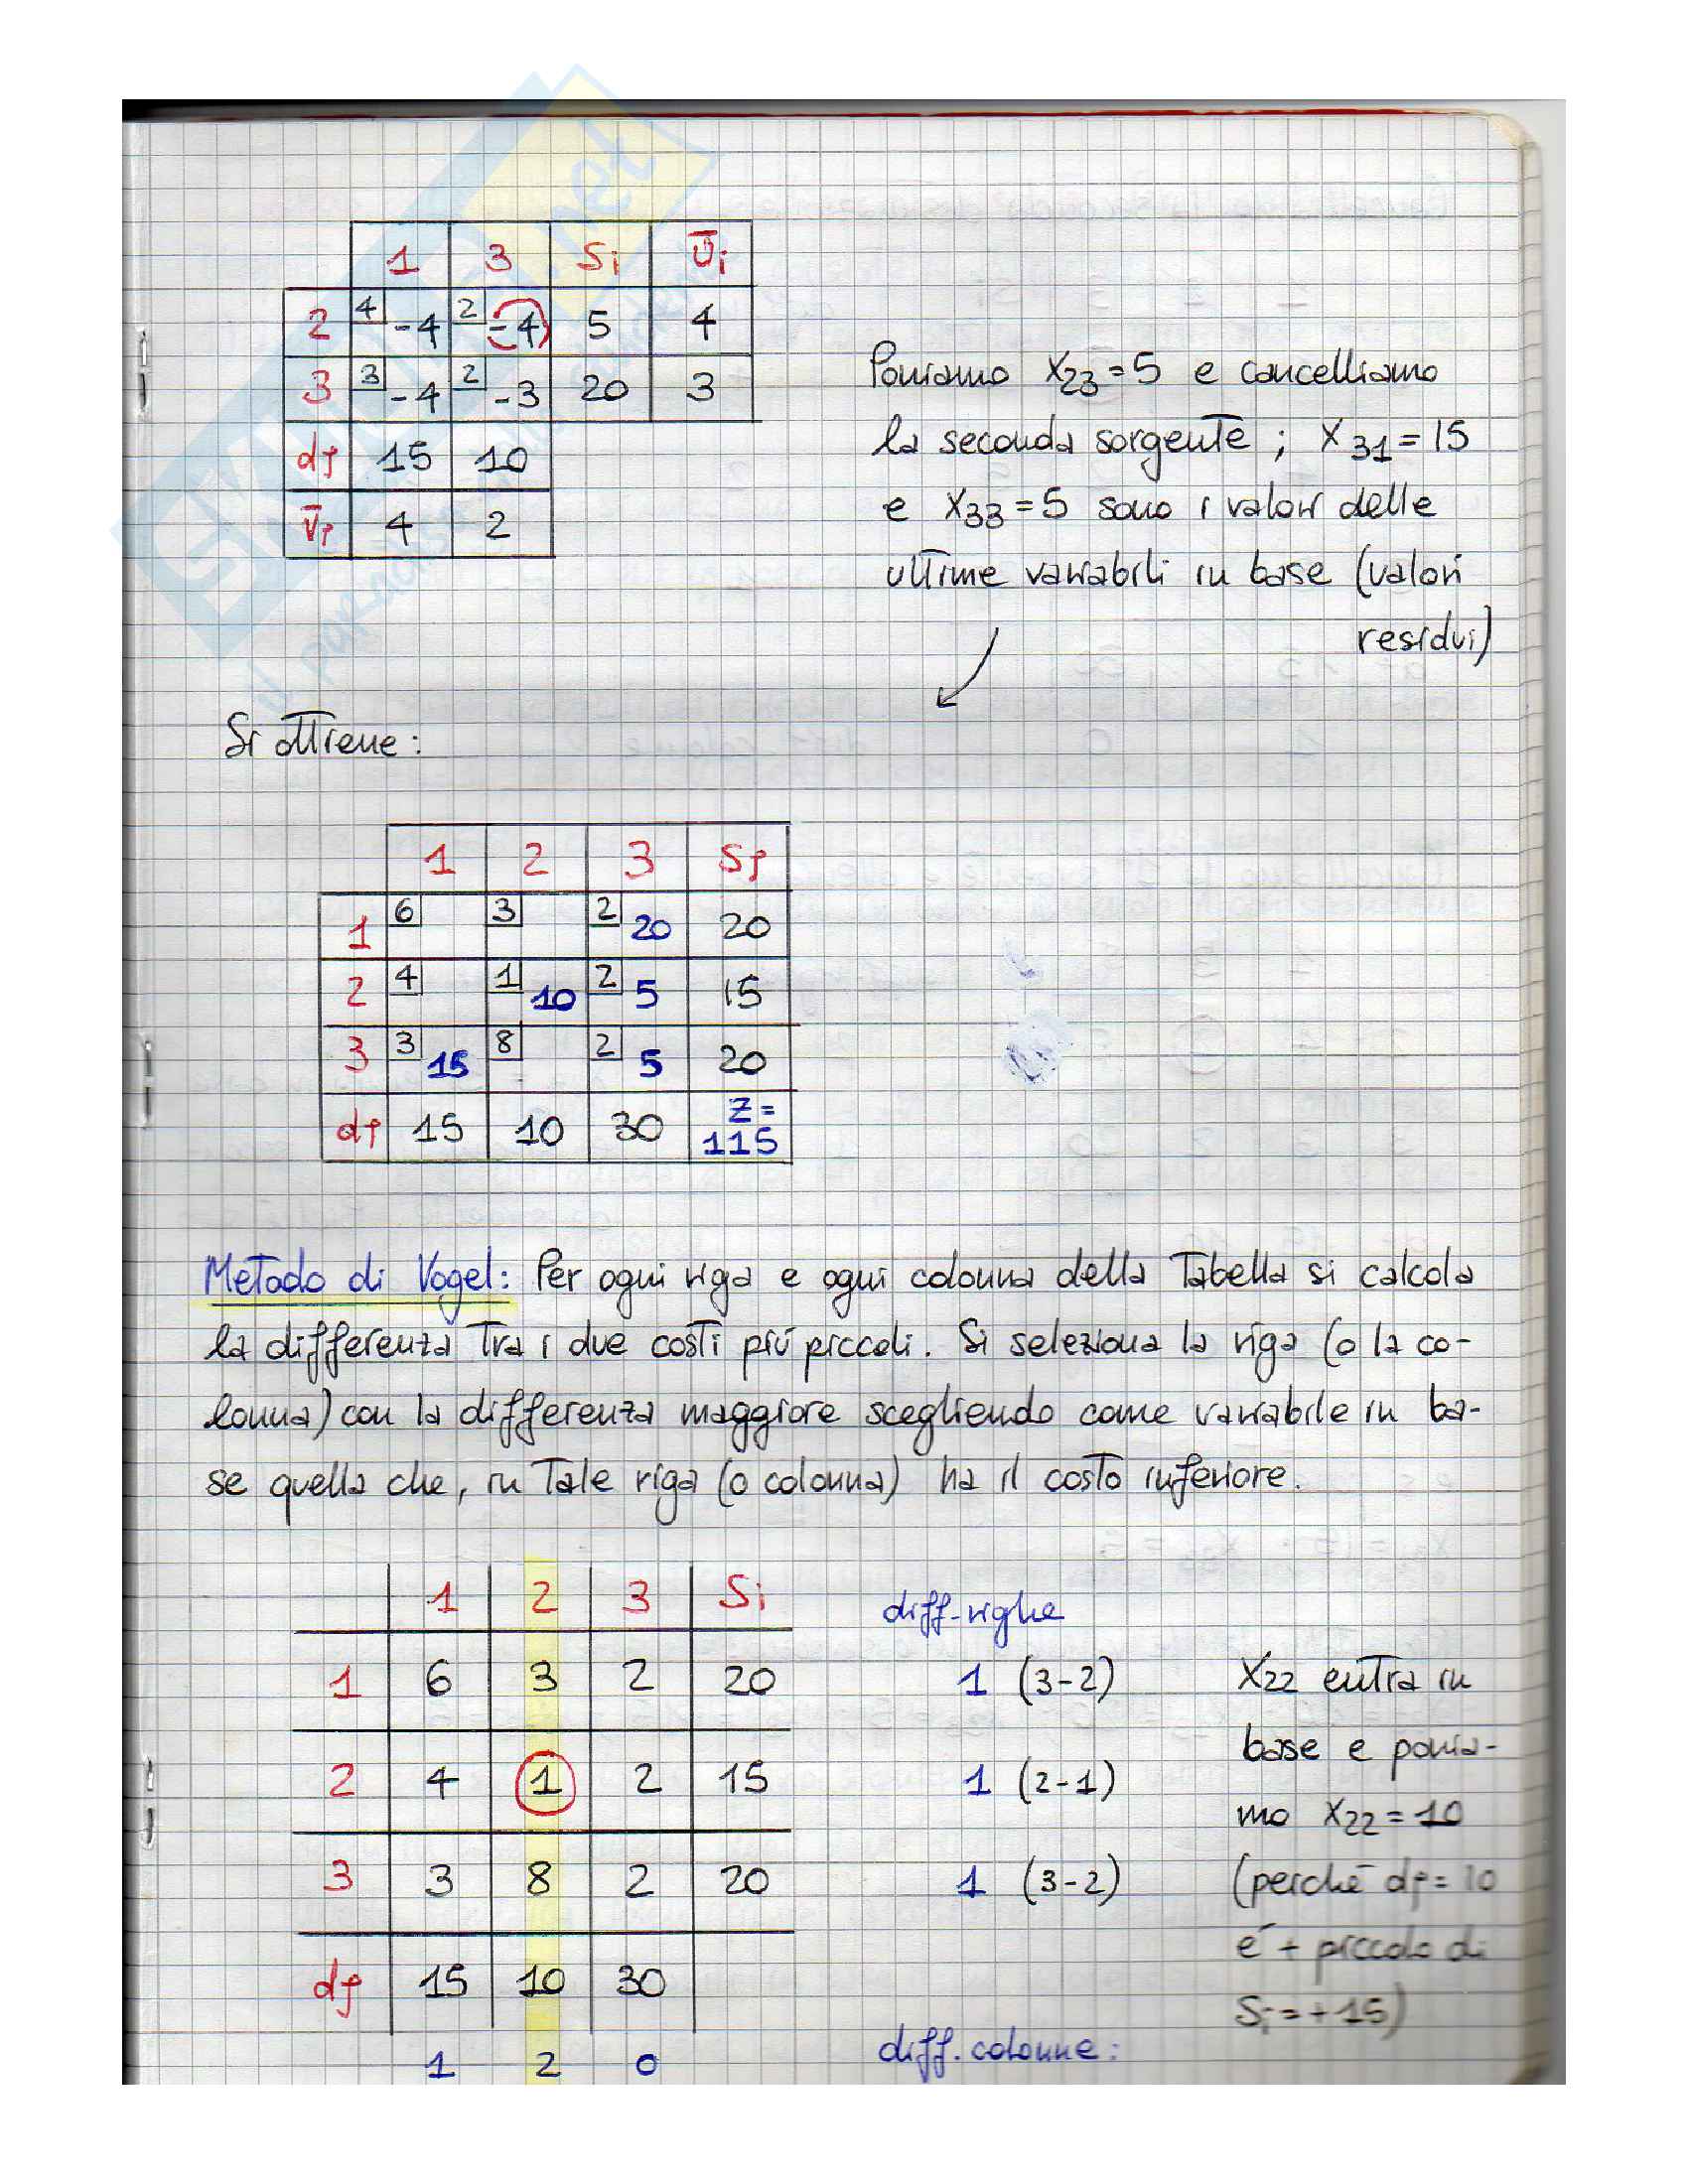 1 3 Si Ūi
2 4 -4 2 -4 5 4
3 3 -4 2 -3 20 3
dj 15 10
V̄j 4 2
Poniamo X23=5 e cancelliamo
la seconda sorgente ; X31=15
e X33=5 sono i valori delle
ultime variabili in base (valori
residui)
Si ottiene:
1 2 3 Sj
1 6 3 2 20 20
2 4 1 10 2 5 15
3 3 15 8 2 5 20
dj 15 10 30 Z=
115
Metodo di Vogel: Per ogni riga e ogni colonna della Tabella si calcola
la differenza tra i due costi più piccoli. Si seleziona la riga (o la co-
lonna) con la differenza maggiore scegliendo come variabile in ba-
se quella che, in tale riga (o colonna) ha il costo inferiore.
1 2 3 Si diff. righe
1 6 3 2 20 1 (3-2) X22 entra in
base e ponia-
2 4 1 2 15 1 (2-1)
mo X22=10
3 3 8 2 20 1 (3-2) (perché dj=10
è + piccolo di
dj 15 10 30
Si=+15)
1 2 0 diff. colonne: